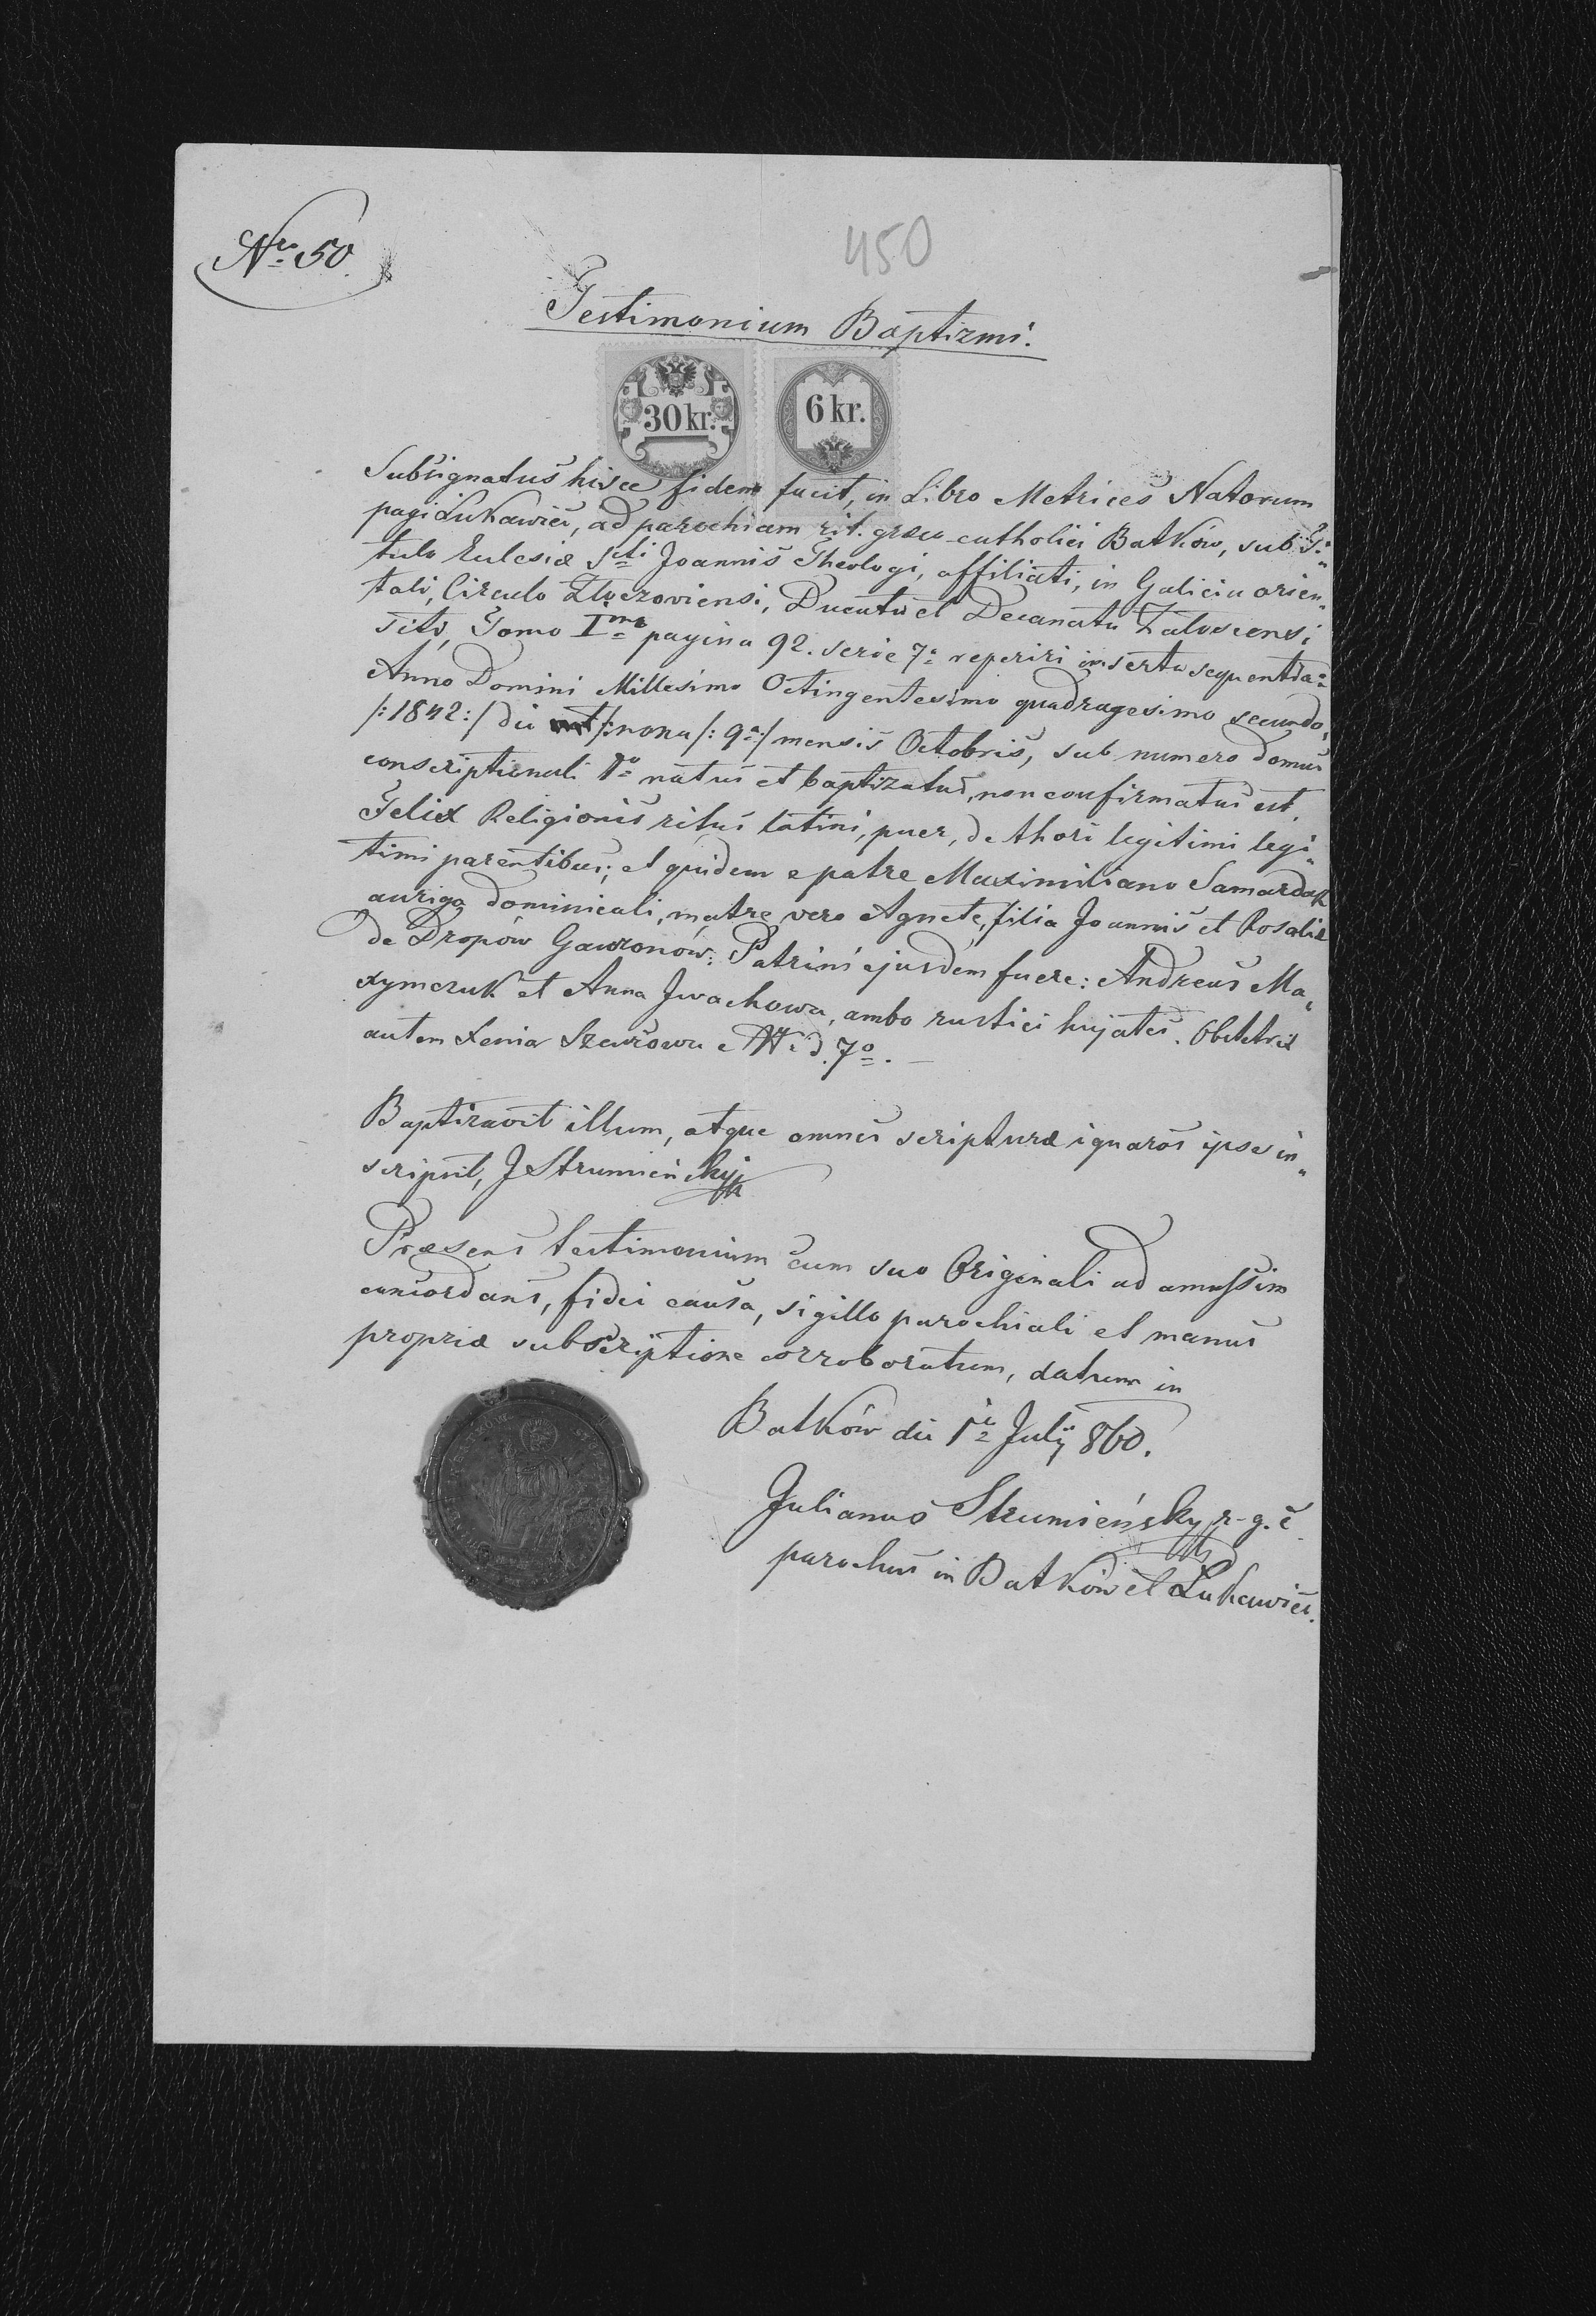 Nro 50.
450
Testimonium Baptizmi.
30 kr. 6 kr.
Subsignatus hisce fidem facit, in Libro Metrices Natorum
pagi Lukawiec, ad parochiam rit. græco-catholici Batków, sub Ti„
tulo Eclesiæ Scti Joannis Theologi, affiliati, in Galicia orien„
tali, Circulo Zloczoviensi, Ducatu et Decanatu Zalosciensi
siti, Tomo Imo pagina 92. serie 7a reperiri inserta sequentia:
Anno Domini Millesimo Octingentesimo quadragesimo secundo,
/:1842:/ die nona /:9a:/ mensis Octobris, sub numero domus
conscriptionali 1o natus et baptizatus, non confirmatus est,
Felix Religionis ritus latini, puer, de thori legitimi legi„
timi parentibus; et quidem e patre Maximiliano Samardak
auriga dominicali, matre vero Agnete, filia Joannis et Rosaliæ
de Dropów Gawronów: Patrini ejusdem fuere: Andreas Ma„
xymczuk et Anna Iwachowa, ambo rustici hujates. Obstetrix
autem Xenia Szewcowa e Nr. d. 7o. —
Baptizavit illum, atque omnes scripturæ ignaros ipse in„
scripsit, J Strumieńskyj
Præsens testimonium cum suo Originali ad amussim
concordans, fidei causa, sigillo parochiali et manus
propriæ subscriptione corroboratum, datum in
Batków die 1a Julij 860.
Julianus Strumieńsky r. g. c.
parochus in Batków et Lukawiec.